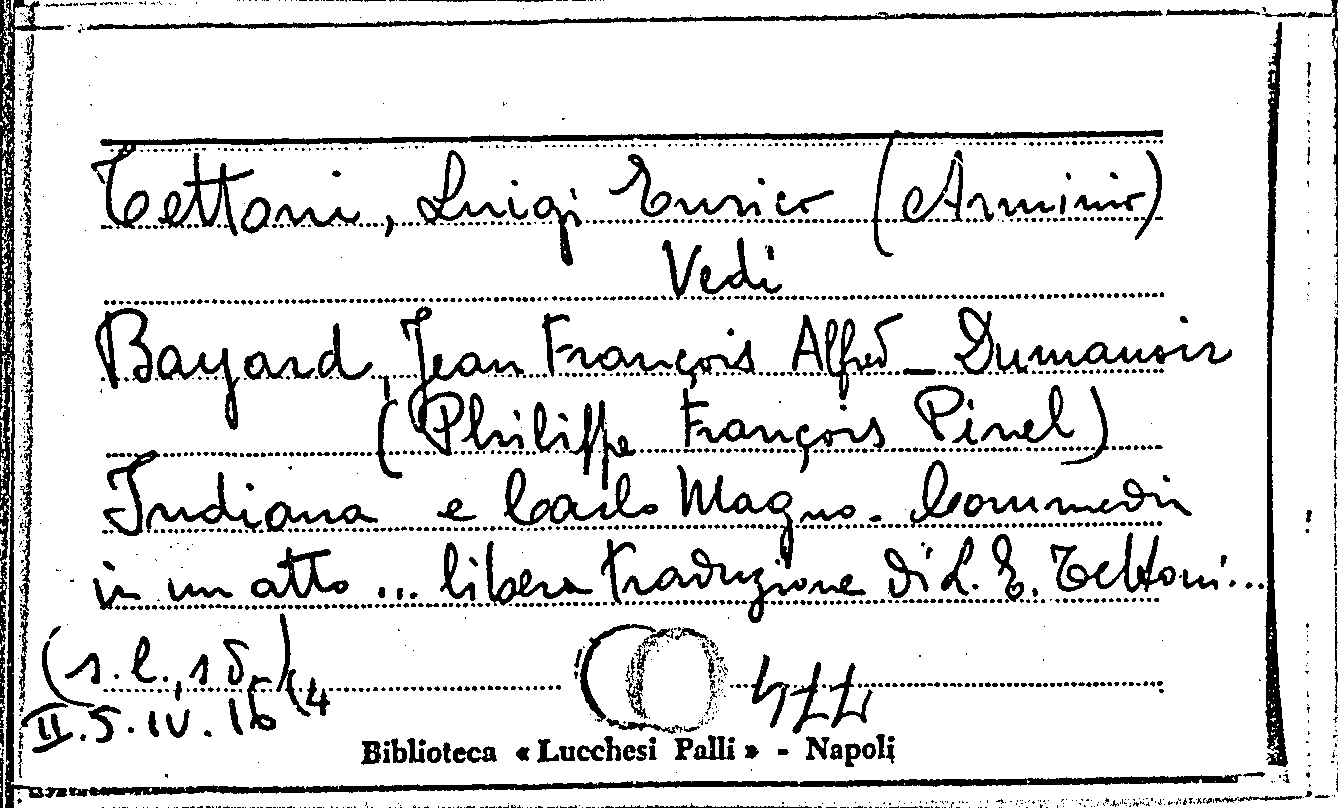 Tettoni, Luigi Enrico (Arminio)
Vedi
Bayard, Jean François Alfred - Dumanoir
(Philippe François Pinel)
Indiana e Carlo Magno. Commedia
in un atto ... libera traduzione di L. E. Tettoni...
(s.l., s.d.)
II.5.IV.16(4
Biblioteca « Lucchesi Palli » - Napoli